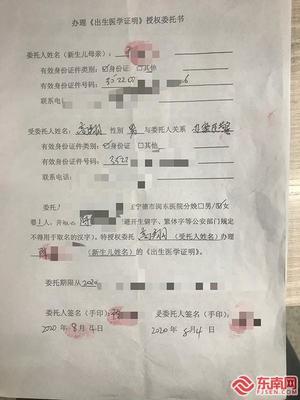 办理《出生医学证明》授权委托书
委托人姓名（新生儿母亲）：
有效身份证件类别：☑身份证 □其他
有效身份证件号码：352200 6
联系电话
受委托人姓名： 性别 男 与委托人关系
有效身份证件类别：☑身份证 □其他
有效身份证件号码：3522
联系电话：
委托 宁德市闽东医院分娩□男/☑女
婴1人，并取名 避开生僻字、繁体字等公安部门规定
不得用于取名的汉字）。特授权委托 （受托人姓名）办理
（新生儿姓名）的《出生医学证明》。
委托期限从2020
委托人签名（手印）： 受托人签名（手印）：
2020年8月4日 2020年8月4日
东南网